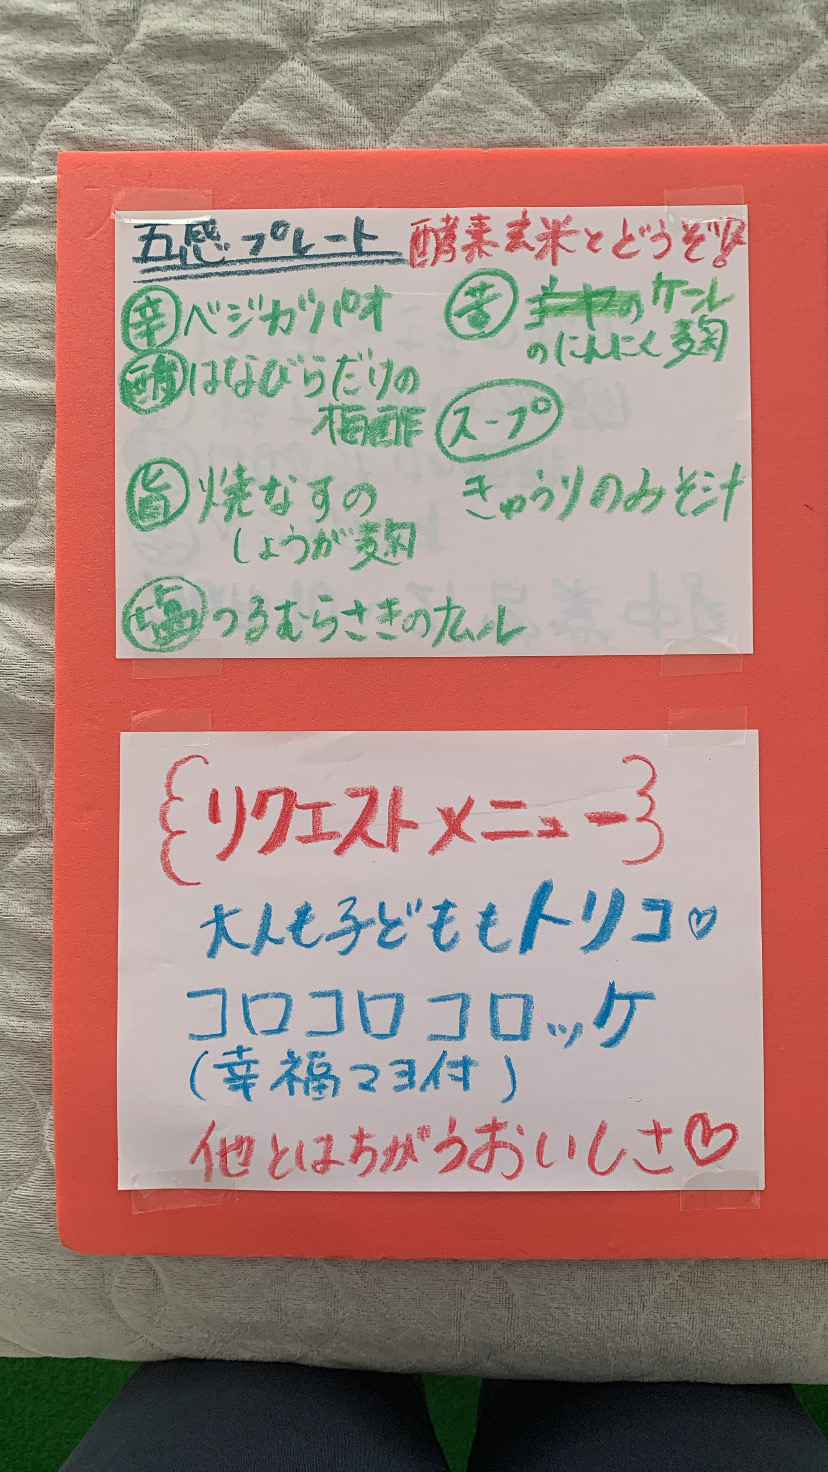 五感プレート 酵素玄米とどうぞ!!
辛 ベジガパオ
酸 はなびらだけの
梅酢
旨 焼なすの
しょうが麹
塩 つるむらさきのナムル
苦 ケール
のにんにく麹
スープ
きゅうりのみそ汁
リクエストメニュー
大人も子どももトリコ♡
コロコロコロッケ
(幸福マヨ付)
他とはちがうおいしさ♡